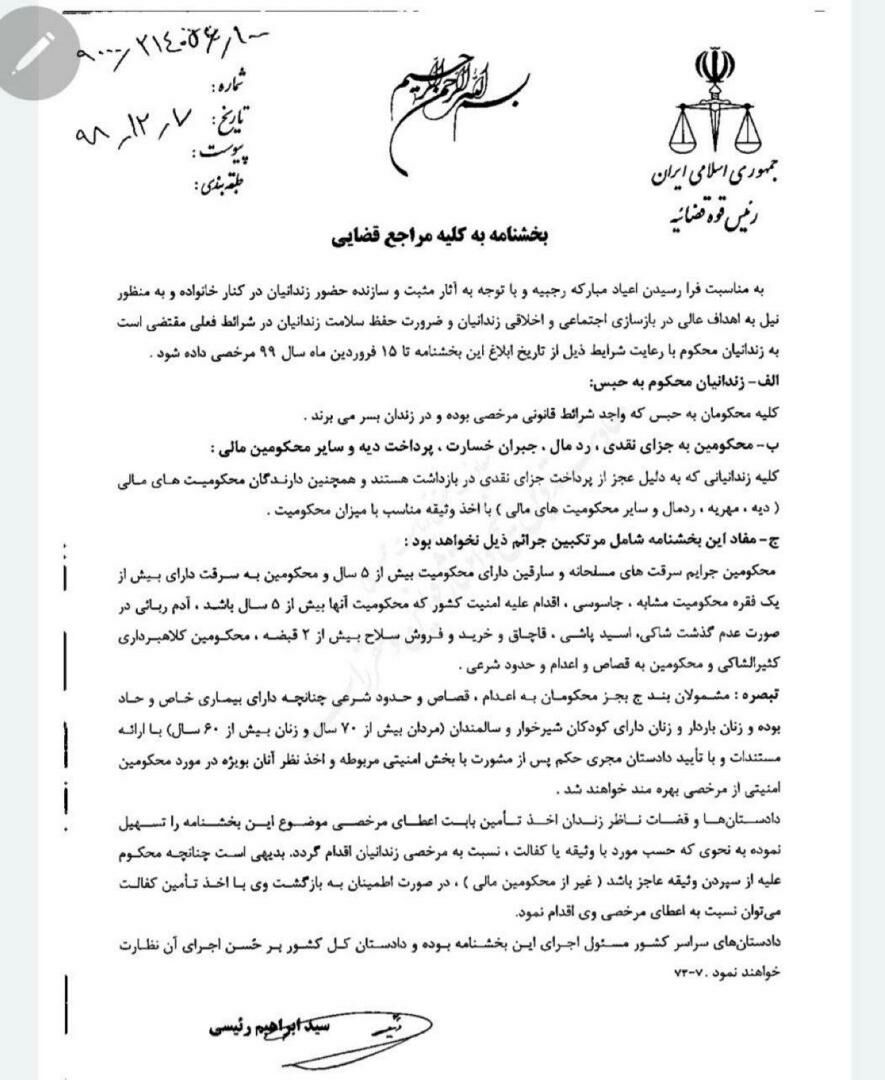 ۹۰۰۰/۲۱۴۰۵۶/۱۰۰
شماره:
تاریخ: ۹۸/۱۲/۷
پیوست:
طبقه‌بندی:
بسم الله الرحمن الرحیم
جمهوری اسلامی ایران
رئیس قوه قضائیه
بخشنامه به کلیه مراجع قضایی
به مناسبت فرا رسیدن اعیاد مبارکه رجبیه و با توجه به آثار مثبت و سازنده حضور زندانیان در کنار خانواده و به منظور
نیل به اهداف عالی در بازسازی اجتماعی و اخلاقی زندانیان و ضرورت حفظ سلامت زندانیان در شرائط فعلی مقتضی است
به زندانیان محکوم با رعایت شرایط ذیل از تاریخ ابلاغ این بخشنامه تا ۱۵ فروردین ماه سال ۹۹ مرخصی داده شود .
الف- زندانیان محکوم به حبس:
کلیه محکومان به حبس که واجد شرائط قانونی مرخصی بوده و در زندان بسر می برند .
ب- محکومین به جزای نقدی ، رد مال ، جبران خسارت ، پرداخت دیه و سایر محکومین مالی :
کلیه زندانیانی که به دلیل عجز از پرداخت جزای نقدی در بازداشت هستند و همچنین دارندگان محکومیت های مالی
( دیه ، مهریه ، ردمال و سایر محکومیت های مالی ) با اخذ وثیقه مناسب با میزان محکومیت .
ج- مفاد این بخشنامه شامل مرتکبین جرائم ذیل نخواهد بود :
محکومین جرایم سرقت های مسلحانه و سارقین دارای محکومیت بیش از ۵ سال و محکومین به سرقت دارای بیش از
یک فقره محکومیت مشابه ، جاسوسی ، اقدام علیه امنیت کشور که محکومیت آنها بیش از ۵ سال باشد ، آدم ربائی در
صورت عدم گذشت شاکی، اسید پاشی ، قاچاق و خرید و فروش سلاح بیش از ۲ قبضه ، محکومین کلاهبرداری
کثیرالشاکی و محکومین به قصاص و اعدام و حدود شرعی .
تبصره : مشمولان بند ج بجز محکومان به اعدام ، قصاص و حدود شرعی چنانچه دارای بیماری خاص و حاد
بوده و زنان باردار و زنان دارای کودکان شیرخوار و سالمندان (مردان بیش از ۷۰ سال و زنان بیش از ۶۰ سال) با ارائه
مستندات و با تأیید دادستان مجری حکم پس از مشورت با بخش امنیتی مربوطه و اخذ نظر آنان بویژه در مورد محکومین
امنیتی از مرخصی بهره مند خواهند شد .
دادستان‌ها و قضات ناظر زندان اخذ تأمین بابت اعطای مرخصی موضوع این بخشنامه را تسهیل
نموده به نحوی که حسب مورد با وثیقه یا کفالت ، نسبت به مرخصی زندانیان اقدام گردد. بدیهی است چنانچه محکوم
علیه از سپردن وثیقه عاجز باشد ( غیر از محکومین مالی ) ، در صورت اطمینان به بازگشت وی با اخذ تأمین کفالت
می‌توان نسبت به اعطای مرخصی وی اقدام نمود.
دادستان‌های سراسر کشور مسئول اجرای این بخشنامه بوده و دادستان کل کشور بر حُسن اجرای آن نظارت
خواهند نمود .۷-۷۳
سید ابراهیم رئیسی